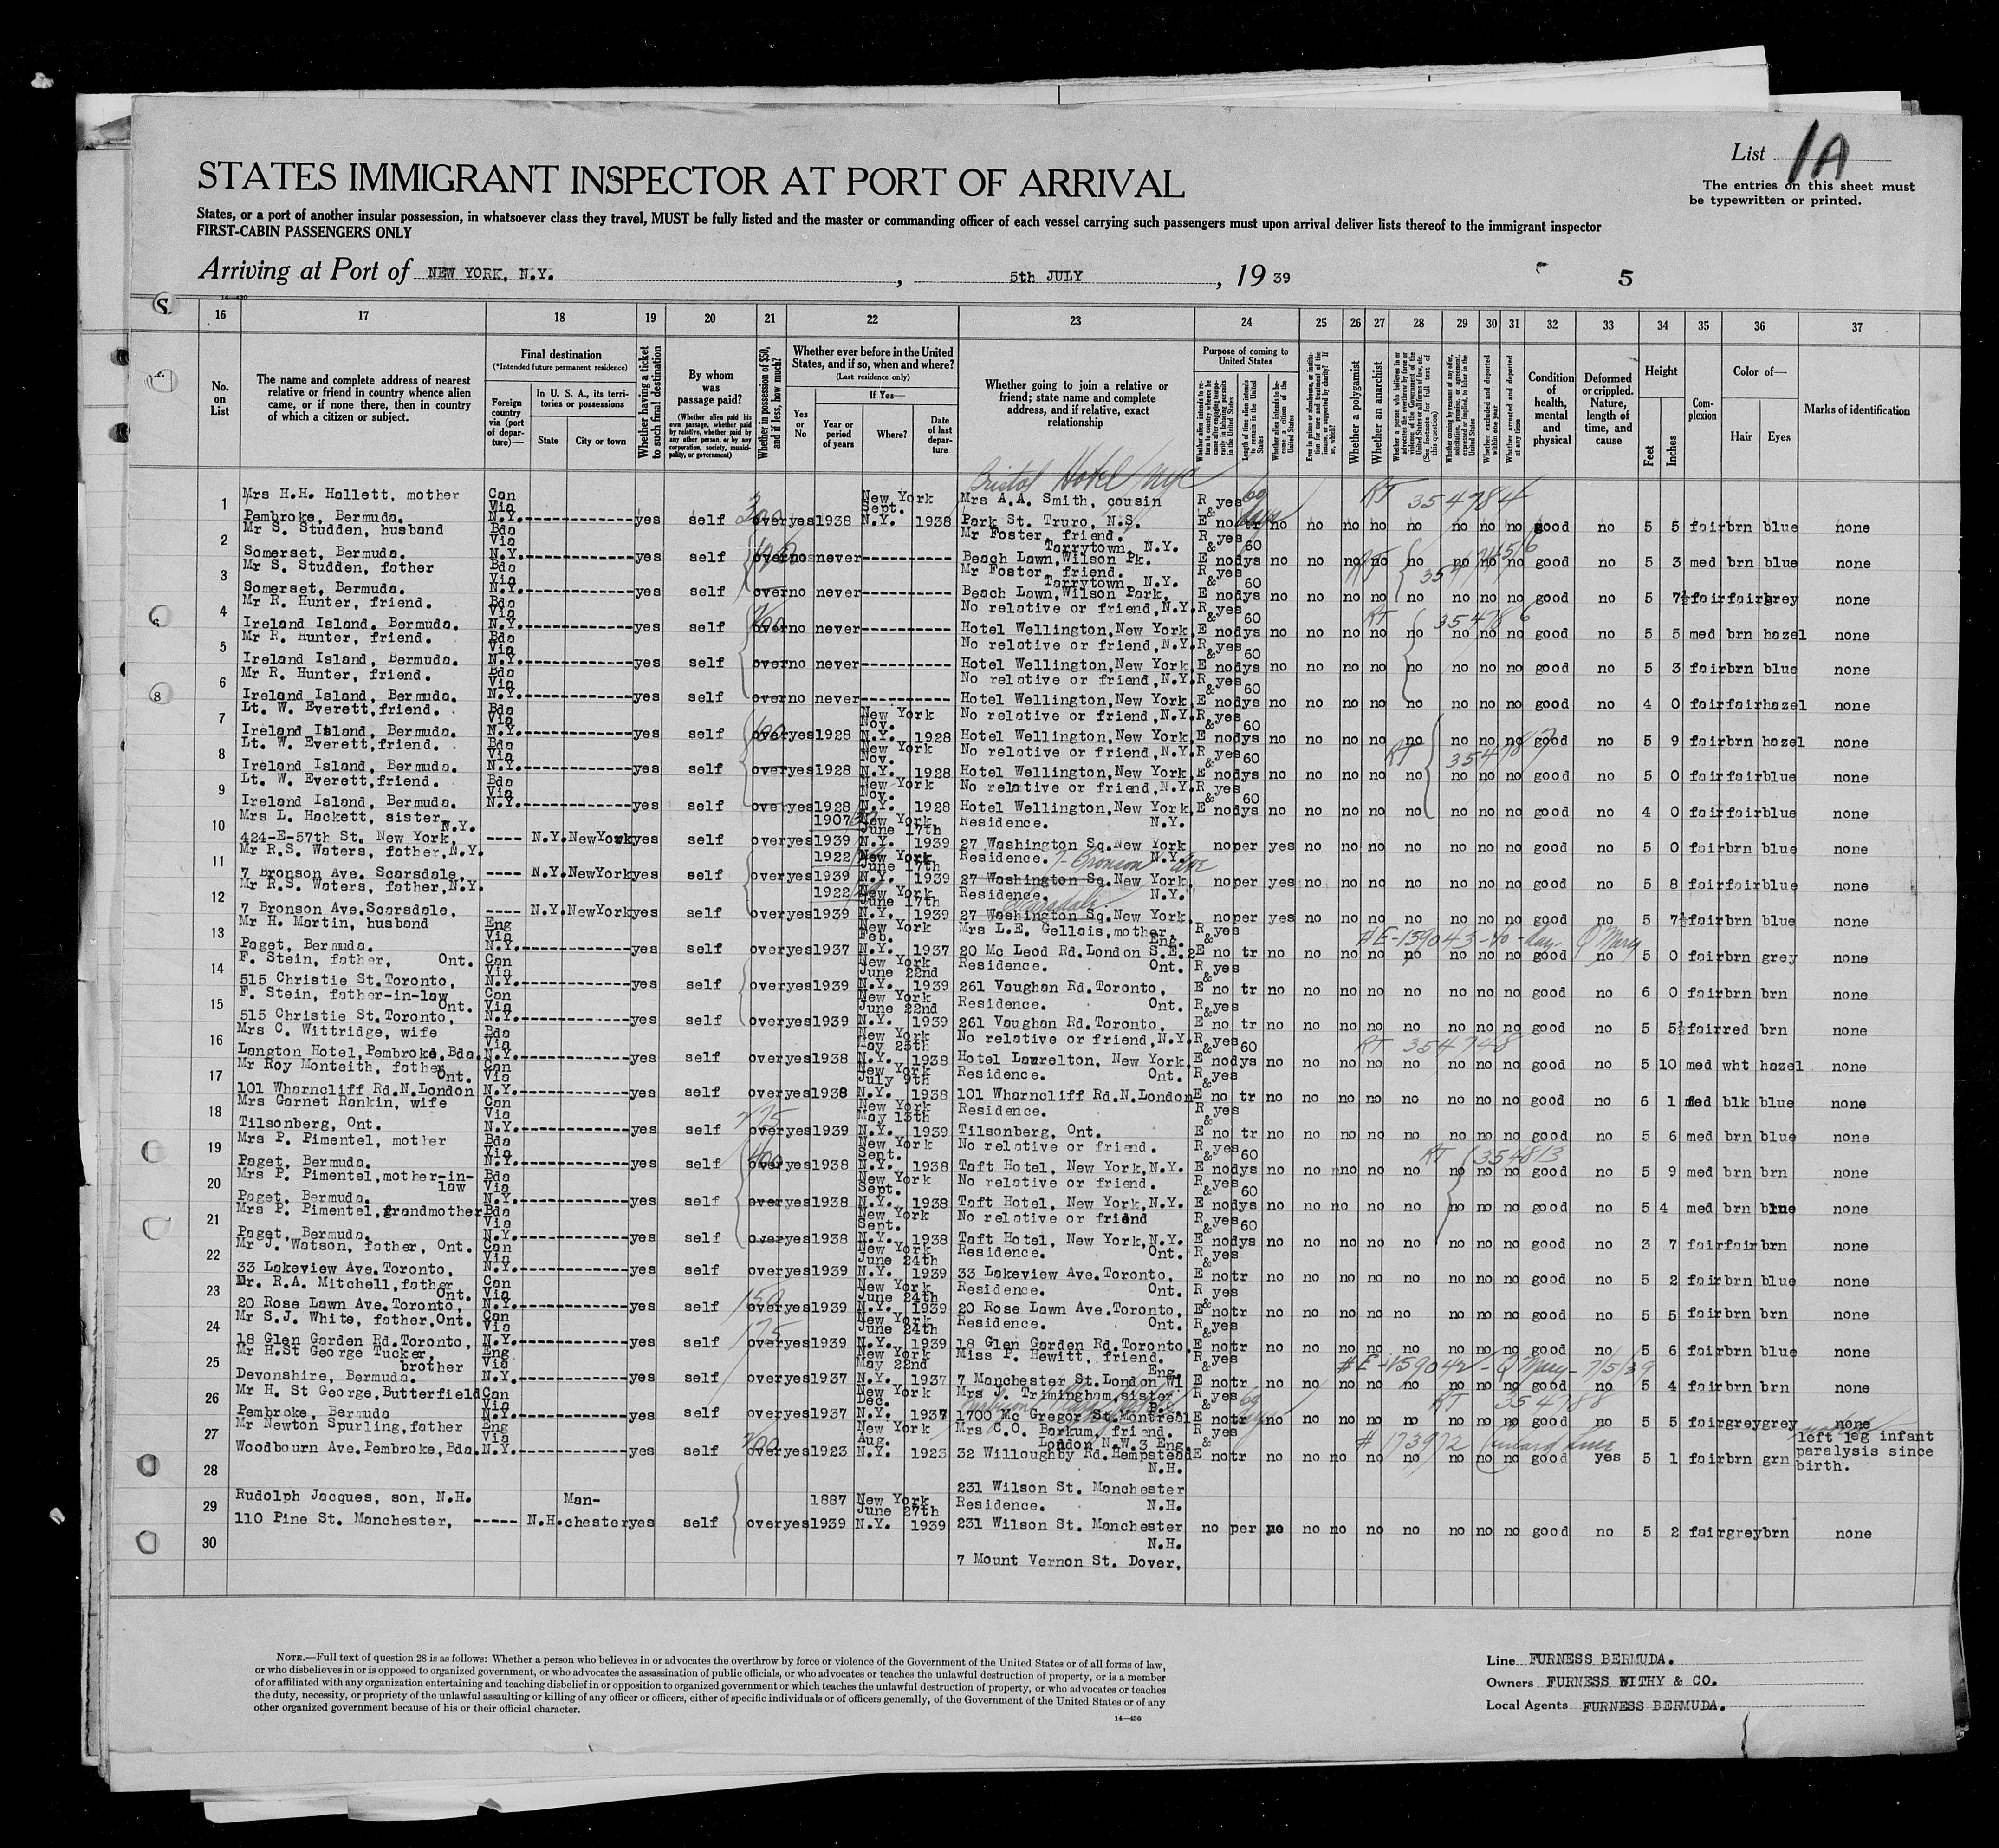 List 1A
The entries on this sheet must
be typewritten or printed.
STATES IMMIGRANT INSPECTOR AT PORT OF ARRIVAL
States, or a port of another insular possession, in whatsoever class they travel, MUST be fully listed and the master or commanding officer of each vessel carrying such passengers must upon arrival deliver lists thereof to the immigrant inspector
FIRST-CABIN PASSENGERS ONLY
Arriving at Port of NEW YORK, N.Y. , 5th JULY , 19 39 5
14—430
16 17 18 19 20 21 22 23 24 25 26 27 28 29 30 31 32 33 34 35 36 37
No. on List
The name and complete address of nearest relative or friend in country whence alien came, or if none there, then in country of which a citizen or subject.
Final destination
(*Intended future permanent residence)
Foreign country via (port of departure)—
In U. S. A., its territories or possessions
State City or town
Whether having a ticket to such final destination
By whom was passage paid?
(Whether alien paid his own passage, whether paid by relative, whether paid by any other person, or by any corporation, society, municipality, or government)
Whether in possession of $50, and if less, how much?
Whether ever before in the United States, and if so, when and where?
(Last residence only)
Yes or No
If Yes—
Year or period of years
Where?
Date of last departure
Whether going to join a relative or friend; state name and complete address, and if relative, exact relationship
Purpose of coming to United States
Whether a polygamist
Whether an anarchist
Condition of health, mental and physical
Deformed or crippled. Nature, length of time, and cause
Height
Feet Inches
Complexion
Color of—
Hair Eyes
Marks of identification
Bristol Hotel NYC
1 Mrs H.H. Hallett, mother Pembroke, Bermuda. Can Via N.Y. yes self 300 over yes 1938 New York Sept. N.Y. 1938 Mrs A.A. Smith, cousin Park St. Truro, N.S. R yes & E no tr 60 days no no no no no no no no good no 5 5 fair brn blue none
RT 354784
2 Mr S. Studden, husband Somerset, Bermuda. Bda Via N.Y. yes self over no never Mr Foster, friend. Tarrytown, N.Y. Beach Lawn, Wilson Pk. R yes & E no 60 dys no no no no no no no no good no 5 3 med brn blue none
3 Mr S. Studden, father Somerset, Bermuda. Bda Via N.Y. yes self over no never Mr Foster, friend. Tarrytown, N.Y. Beach Lawn, Wilson Park, R yes & E no 60 dys no no no no no no no no good no 5 7½ fair fair grey none
4 Mr R. Hunter, friend. Ireland Island. Bermuda. Bda Via N.Y. yes self over no never No relative or friend, N.Y. Hotel Wellington, New York, R yes & E no 60 dys no no no no no no no no good no 5 5 med brn hazel none
RT 354786
5 Mr R. Hunter, friend. Ireland Island, Bermuda. Bda Via N.Y. yes self over no never No relative or friend, N.Y. Hotel Wellington, New York, R yes & E no 60 dys no no no no no no no no good no 5 3 fair brn blue none
6 Mr R. Hunter, friend. Ireland Island, Bermuda. Bda Via N.Y. yes self over no never No relative or friend, N.Y. Hotel Wellington, New York, R yes & E no 60 dys no no no no no no no no good no 4 0 fair fair hazel none
7 Lt. W. Everett, friend. Ireland Island, Bermuda. Bda Via N.Y. yes self over yes 1928 New York Nov. N.Y. 1928 No relative or friend, N.Y. Hotel Wellington, New York, R yes & E no 60 dys no no no no no no no no good no 5 9 fair brn hazel none
RT 354787
8 Lt. W. Everett, friend. Ireland Island, Bermuda. Bda Via N.Y. yes self over yes 1928 New York Nov. N.Y. 1928 No relative or friend, N.Y. Hotel Wellington, New York, R yes & E no 60 dys no no no no no no no no good no 5 0 fair fair blue none
9 Lt. W. Everett, friend. Ireland Island, Bermuda. Bda Via N.Y. yes self over yes 1928 New York Nov. N.Y. 1928 No relative or friend, N.Y. Hotel Wellington, New York, R yes & E no 60 dys no no no no no no no no good no 4 0 fair fair blue none
10 Mrs L. Hackett, sister, N.Y. 424-E-57th St. New York, N.Y. New York yes self over yes 1907 1939 New York June 17th N.Y. 1939 Residence. N.Y. 27 Washington Sq. New York no per yes no no no no no no no good no 5 0 fair brn blue none
11 Mr R.S. Waters, father, N.Y. 7 Bronson Ave. Scarsdale, N.Y. New York yes self over yes 1922 1939 New York June 17th N.Y. 1939 Residence. N.Y. 7 Bronson Ave 27 Washington Sq. New York, no per yes no no no no no no no good no 5 8 fair fair blue none
12 Mr R.S. Waters, father, N.Y. 7 Bronson Ave. Scarsdale, N.Y. New York yes self over yes 1922 1939 New York June 17th N.Y. 1939 Residence. N.Y. Scarsdale 27 Washington Sq. New York, no per yes no no no no no no no good no 5 7½ fair brn blue none
13 Mr H. Martin, husband Paget, Bermuda. Eng Via N.Y. yes self over yes 1937 New York Feb. N.Y. 1937 Mrs L.E. Gellais, mother, Eng. 20 Mc Leod Rd. London S.E.2 R yes & E no tr no no no no no no no no good no 5 0 fair brn grey none
#E-159043-to-day- Q Mary
14 F. Stein, father, Ont. 515 Christie St. Toronto, Can Via N.Y. yes self over yes 1939 New York June 22nd N.Y. 1939 Residence. Ont. 261 Vaughan Rd. Toronto, R yes & E no tr no no no no no no no no good no 6 0 fair brn brn none
15 F. Stein, father-in-law Ont. 515 Christie St. Toronto, Can Via N.Y. yes self over yes 1939 New York June 22nd N.Y. 1939 Residence. Ont. 261 Vaughan Rd. Toronto, R yes & E no tr no no no no no no no no good no 5 5½ fair red brn none
16 Mrs C. Wittridge, wife Langton Hotel, Pembroke, Bda. Bda Via N.Y. yes self over yes 1938 New York May 25th N.Y. 1938 No relative or friend, N.Y. Hotel Laurelton, New York, R yes & E no 60 dys no no no no no no no no good no 5 10 med wht hazel none
RT 354748
17 Mr Roy Monteith, father Ont. 101 Wharncliff Rd. N. London Can Via N.Y. yes self over yes 1938 New York July 9th N.Y. 1938 Residence. Ont. 101 Wharncliff Rd. N. London R yes & E no tr no no no no no no no no good no 6 1 med blk blue none
18 Mrs Garnet Rankin, wife Tilsonberg, Ont. Can Via N.Y. yes self over yes 1939 New York May 13th N.Y. 1939 Residence. Tilsonberg, Ont. R yes & E no tr no no no no no no no no good no 5 6 med brn blue none
19 Mrs P. Pimentel, mother Paget, Bermuda. Bda Via N.Y. yes self 400 over yes 1938 New York Sept. N.Y. 1938 No relative or friend. Taft Hotel, New York, N.Y. R yes & E no 60 dys no no no no no no no no good no 5 9 med brn brn none
RT 354813
20 Mrs P. Pimentel, mother-in-law Paget, Bermuda. Bda Via N.Y. yes self over yes 1938 New York Sept. N.Y. 1938 No relative or friend. Taft Hotel, New York, N.Y. R yes & E no 60 dys no no no no no no no no good no 5 4 med brn blue none
21 Mrs P. Pimentel, grandmother Paget, Bermuda. Bda Via N.Y. yes self over yes 1938 New York Sept. N.Y. 1938 No relative or friend Taft Hotel, New York, N.Y. R yes & E no 60 dys no no no no no no no no good no 3 7 fair fair brn none
22 Mr J. Watson, father, Ont. 33 Lakeview Ave. Toronto, Can Via N.Y. yes self over yes 1939 New York June 24th N.Y. 1939 Residence. Ont. 33 Lakeview Ave. Toronto, R yes & E no tr no no no no no no no no good no 5 2 fair brn blue none
23 Dr. R.A. Mitchell, father Ont. 20 Rose Lawn Ave. Toronto, Can Via N.Y. yes self 150 over yes 1939 New York June 24th N.Y. 1939 Residence. Ont. 20 Rose Lawn Ave. Toronto, R yes & E no tr no no no no no no no no good no 5 5 fair brn brn none
24 Mr S.J. White, father, Ont. 18 Glen Garden Rd. Toronto, Can Via N.Y. yes self 175 over yes 1939 New York June 24th N.Y. 1939 Residence. Ont. 18 Glen Garden Rd. Toronto, R yes & E no tr no no no no no no no no good no 5 6 fair brn blue none
25 Mr H.St George Tucker, brother Devonshire, Bermuda. Eng Via N.Y. yes self over yes 1937 New York May 22nd N.Y. 1937 Miss P. Hewitt, friend. Eng. 7 Manchester St. London W1 R yes & E no tr no no no no no no no no good no 5 4 fair brn brn none
#E-159042- Q Mary - 7/5/39
26 Mr H. St George, Butterfield Pembroke, Bermuda Can Via N.Y. yes self over yes 1937 New York Dec. N.Y. 1937 Mrs J. Trimingham, sister P.Q. 1700 Mc Gregor St. Montreal R yes & E no tr 60 days no no no no no no no no good no 5 5 fair grey grey none
RT 354788
27 Mr Newton Spurling, father Woodbourn Ave. Pembroke, Bda. Eng Via N.Y. yes self 200 over yes 1923 New York Aug. N.Y. 1923 Mrs C.O. Barkum, friend. London N.W.3 Eng. 32 Willoughby Rd. Hempstead R yes & E no tr no no no no no no no no good yes 5 1 fair brn grn left leg infant paralysis since birth.
# 173972 Cunard Line
28 N.H. 231 Wilson St. Manchester
29 Rudolph Jacques, son, N.H. 110 Pine St. Manchester, N.H. Manchester yes self over yes 1887 1939 New York June 27th N.Y. 1939 Residence. N.H. 231 Wilson St. Manchester no per no no no no no no no good no 5 2 fair grey brn none
30 N.H. 7 Mount Vernon St. Dover,
NOTE.—Full text of question 28 is as follows: Whether a person who believes in or advocates the overthrow by force or violence of the Government of the United States or of all forms of law,
or who disbelieves in or is opposed to organized government, or who advocates the assassination of public officials, or who advocates or teaches the unlawful destruction of property, or is a member
of or affiliated with any organization entertaining and teaching disbelief in or opposition to organized government or which teaches the unlawful destruction of property, or who advocates or teaches
the duty, necessity, or propriety of the unlawful assaulting or killing of any officer or officers, either of specific individuals or of officers generally, of the Government of the United States or of any
other organized government because of his or their official character.
14—430
Line FURNESS BERMUDA.
Owners FURNESS WITHY & CO.
Local Agents FURNESS BERMUDA.